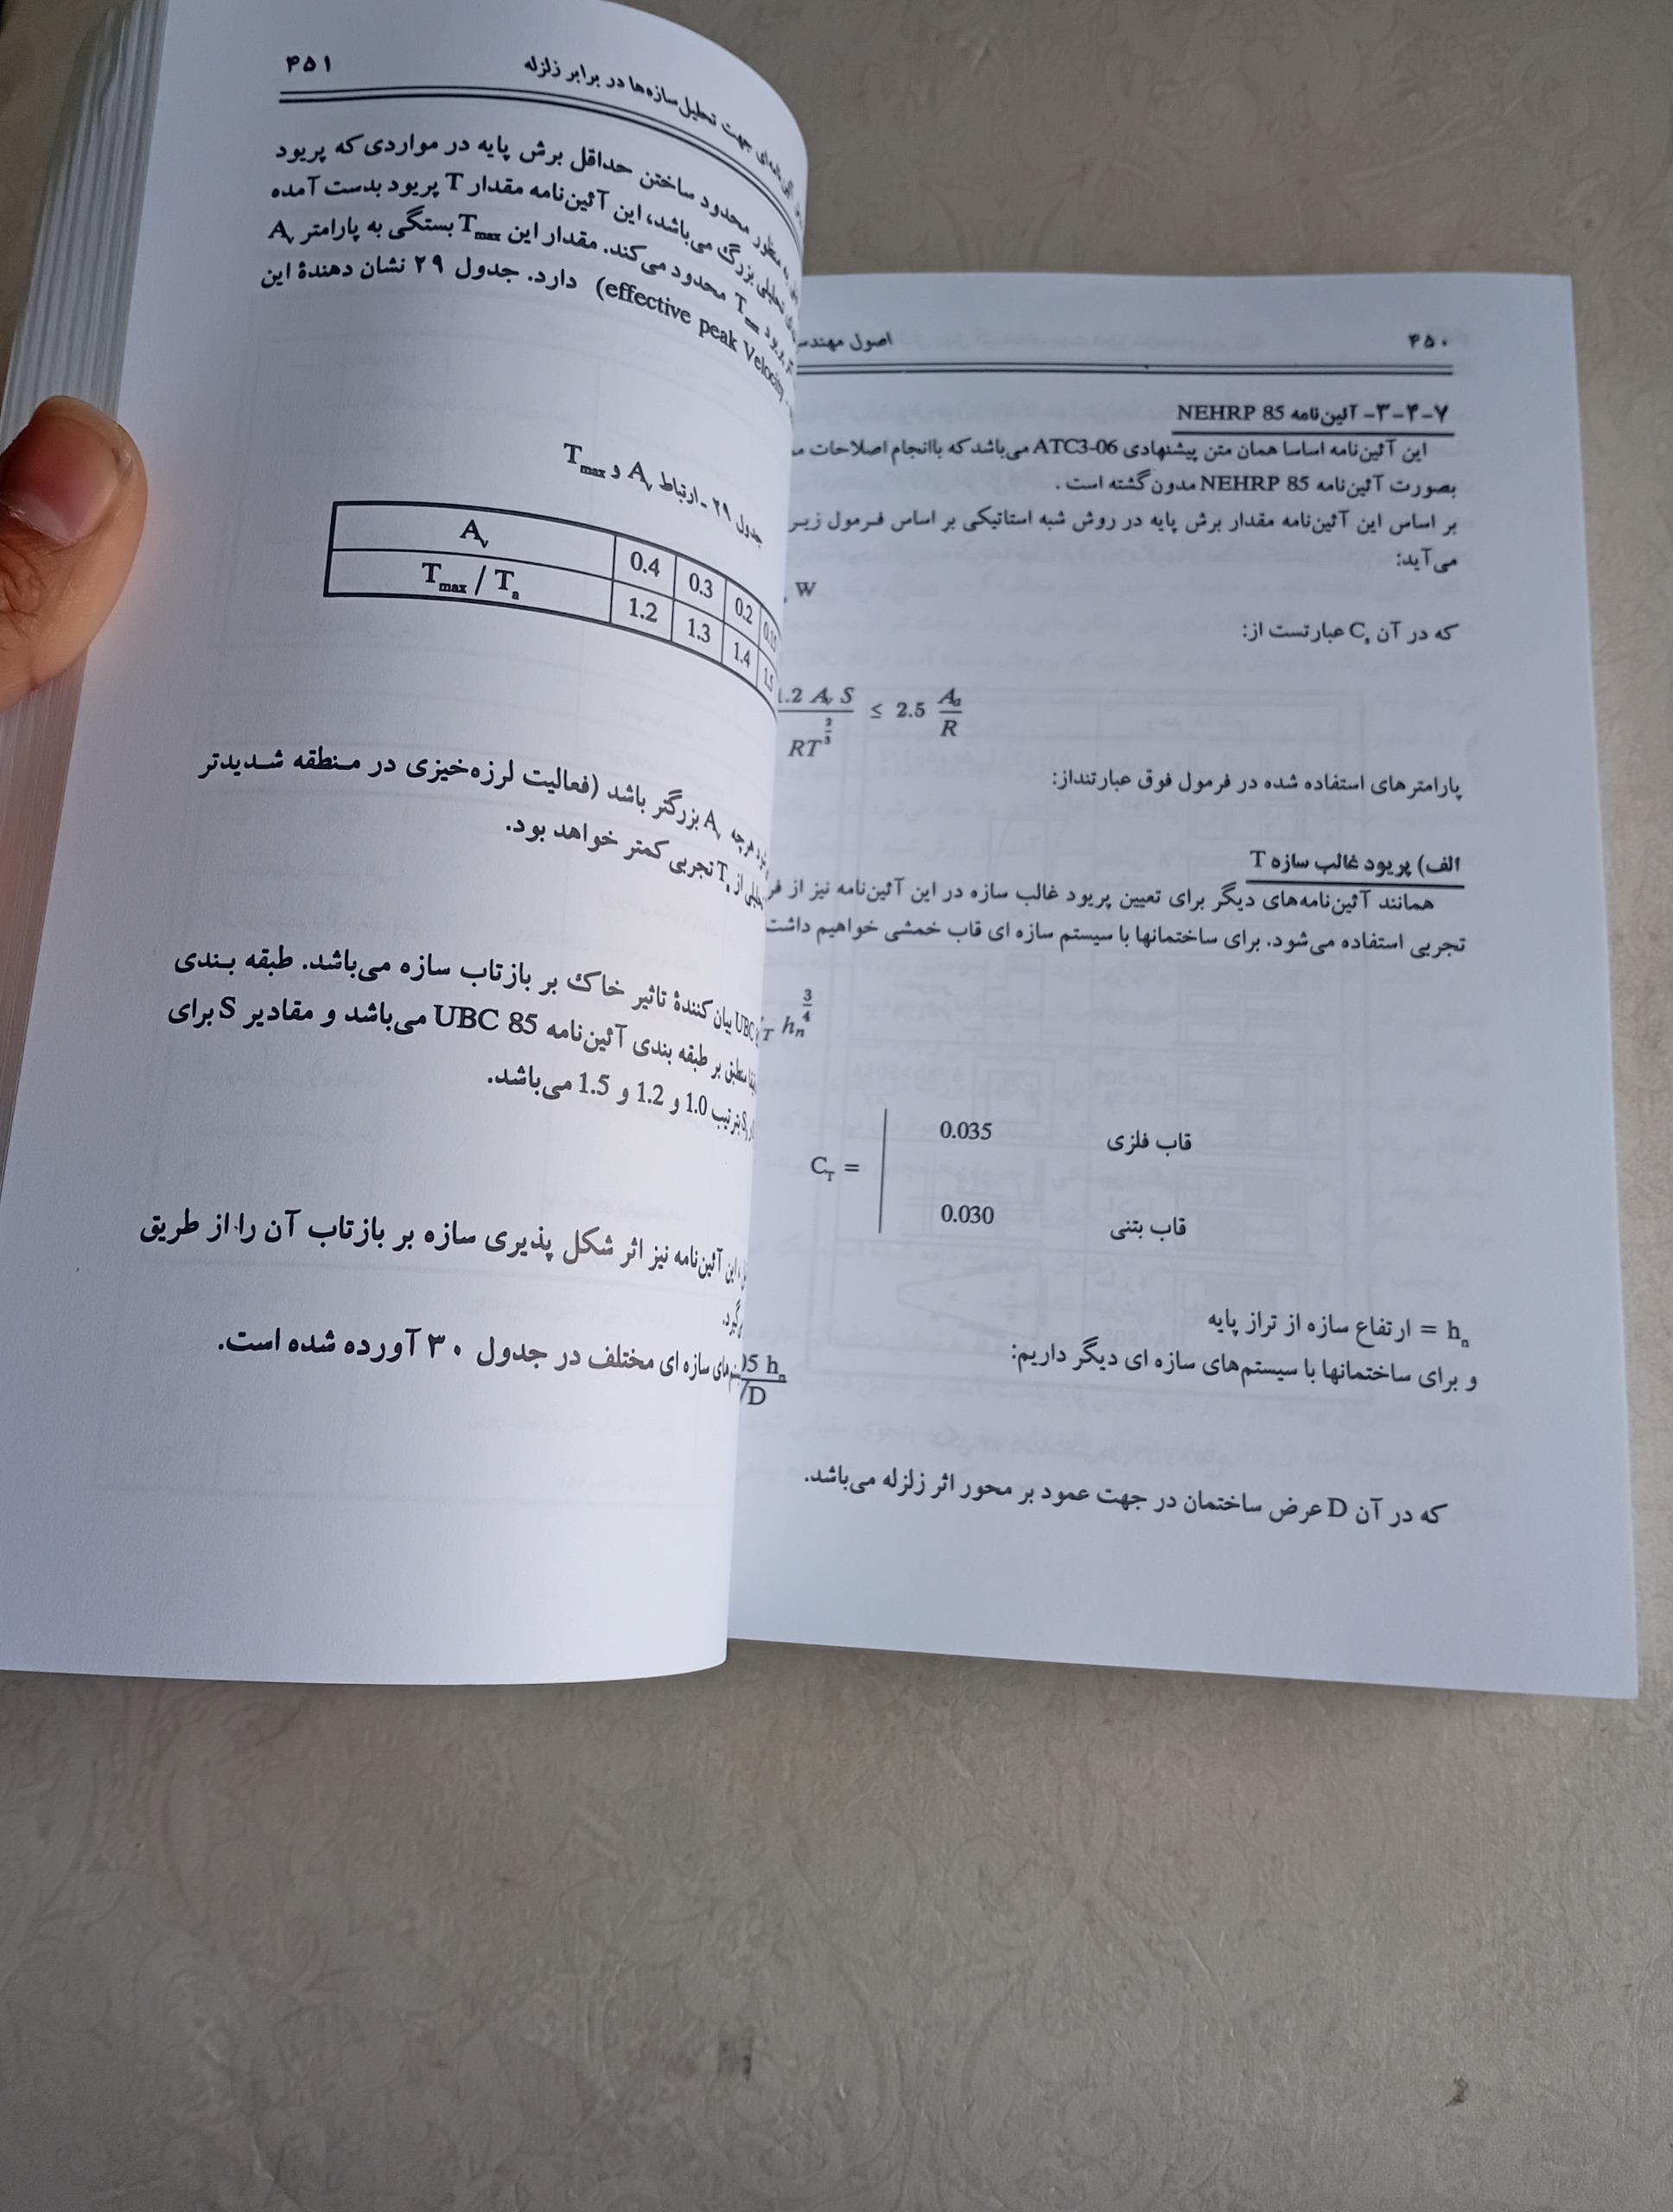 ۴۵۰
اصول مهندسی
۷-۴-۳- آئین‌نامه NEHRP 85
این آئین‌نامه اساسا همان متن پیشنهادی ATC3-06 می‌باشد که باانجام اصلاحات
بصورت آئین‌نامه NEHRP 85 مدون گشته است .
بر اساس این آئین‌نامه مقدار برش پایه در روش شبه استاتیکی بر اساس فرمول زیر
می‌آید:
W
که در آن Cs عبارتست از:
1.2 Av S / RT^(2/3) ≤ 2.5 Aa / R
پارامترهای استفاده شده در فرمول فوق عبارتنداز:
الف) پریود غالب سازه T
همانند آئین‌نامه‌های دیگر برای تعیین پریود غالب سازه در این آئین‌نامه نیز از
تجربی استفاده می‌شود. برای ساختمانها با سیستم سازه ای قاب خمشی خواهیم داشت
T hn^(3/4)
0.035 قاب فلزی
CT =
0.030 قاب بتنی
hn = ارتفاع سازه از تراز پایه
و برای ساختمانها با سیستم‌های سازه ای دیگر داریم:
hn / D
که در آن D عرض ساختمان در جهت عمود بر محور اثر زلزله می‌باشد.
۴۵۱
جهت تحلیل سازه‌ها در برابر زلزله
منظور محدود ساختن حداقل برش پایه در مواردی که پریود
تحلیلی بزرگ می‌باشد، این آئین‌نامه مقدار T پریود بدست آمده
پریود Tmax محدود می‌کند. مقدار این Tmax بستگی به پارامتر Av
(effective peak Velocity دارد. جدول ۲۹ نشان دهندهٔ این
جدول ۲۹ - ارتباط Av و Tmax
Av 0.4 0.3 0.2 0.15
Tmax / Ta 1.2 1.3 1.4 1.5
هرچه Av بزرگتر باشد (فعالیت لرزه‌خیزی در منطقه شدیدتر
از Ta تجربی کمتر خواهد بود.
UBC بیان کنندهٔ تاثیر خاک بر بازتاب سازه می‌باشد. طبقه بندی
منطبق بر طبقه بندی آئین‌نامه UBC 85 می‌باشد و مقادیر S برای
بترتیب 1.0 و 1.2 و 1.5 می‌باشد.
این آئین‌نامه نیز اثر شکل پذیری سازه بر بازتاب آن را از طریق
سازه ای مختلف در جدول ۳۰ آورده شده است.